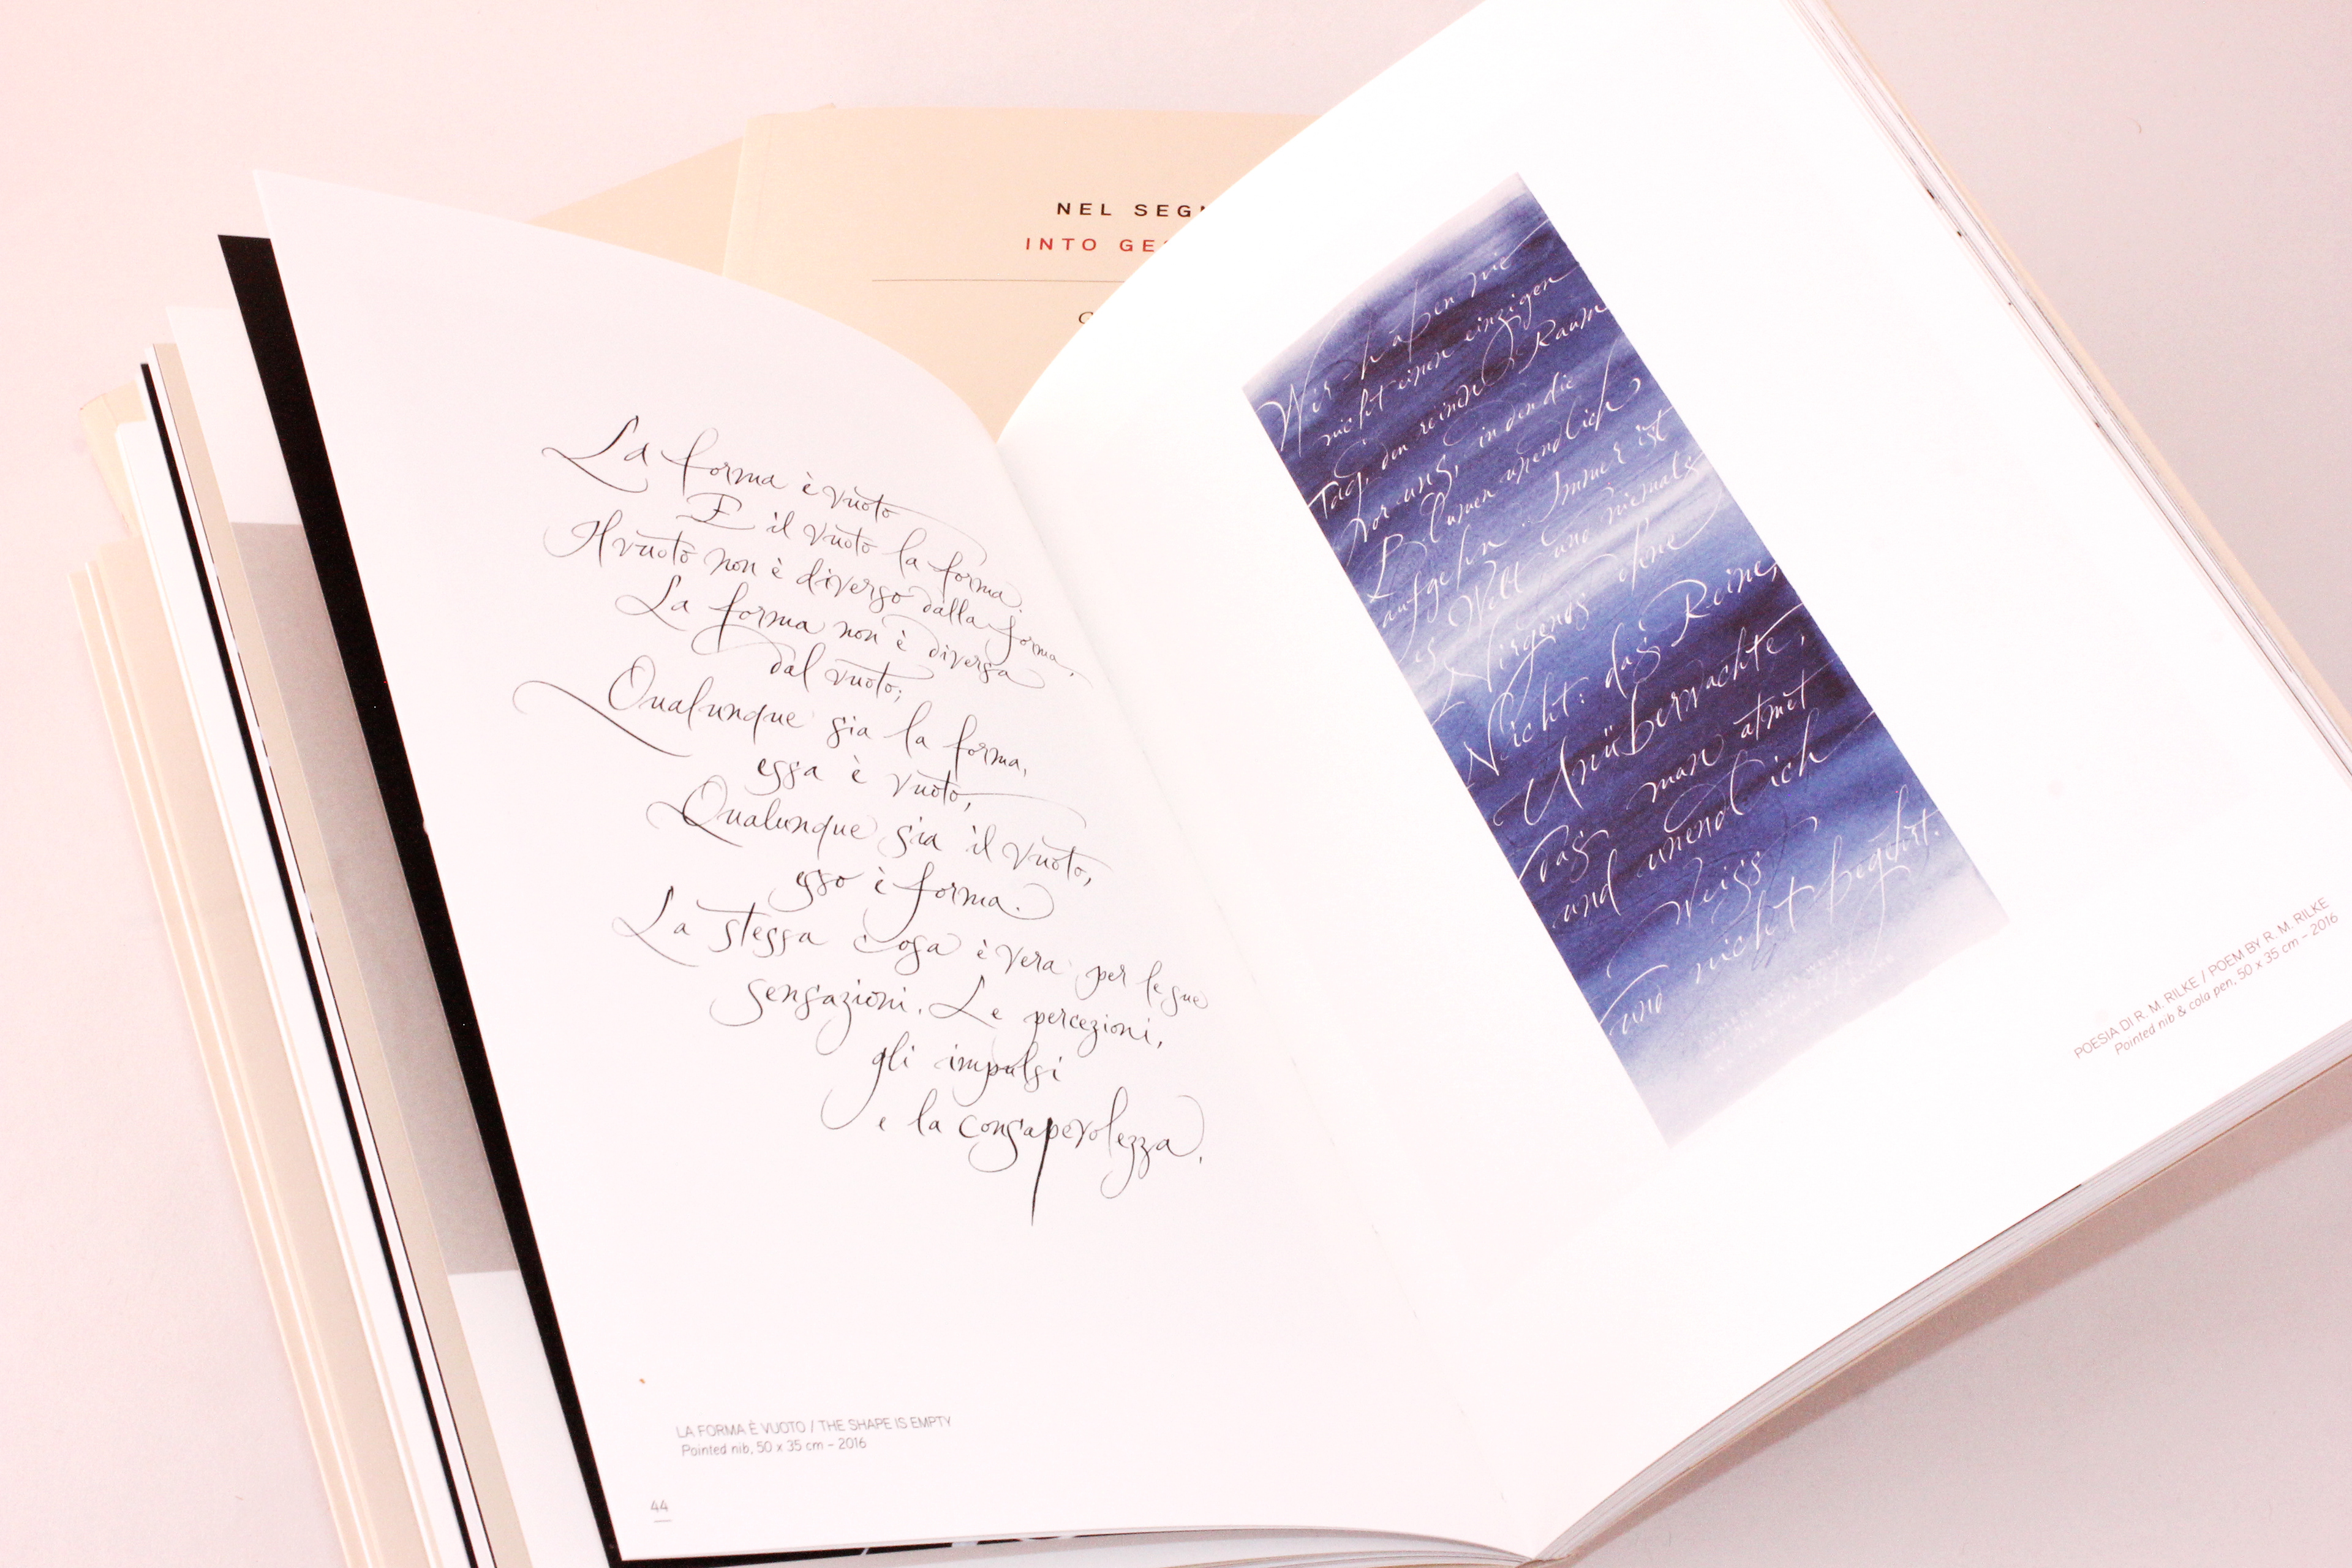 NEL SEGN
INTO GES
La forma è vuoto
E il vuoto la forma.
Il vuoto non è diverso dalla forma,
La forma non è diversa
dal vuoto;
Qualunque sia la forma,
essa è vuoto,
Qualunque sia il vuoto,
esso è forma.
La stessa cosa è vera per le sue
sensazioni. Le percezioni,
gli impulsi
e la consapevolezza.
LA FORMA È VUOTO / THE SHAPE IS EMPTY
Pointed nib, 50 x 35 cm – 2016
44
Wir haben nie
nicht einen einzigen
Tag, den reinen Raum
vor uns, in den die
Blumen unendlich
aufgehn. Immer ist
es Welt und niemals
Nirgends ohne
Nicht: das Reine,
Unüberwachte,
das man atmet
und unendlich
weiss
und nicht begehrt.
POESIA DI R. M. RILKE / POEM BY R. M. RILKE
Pointed nib & cola pen, 50 x 35 cm – 2016